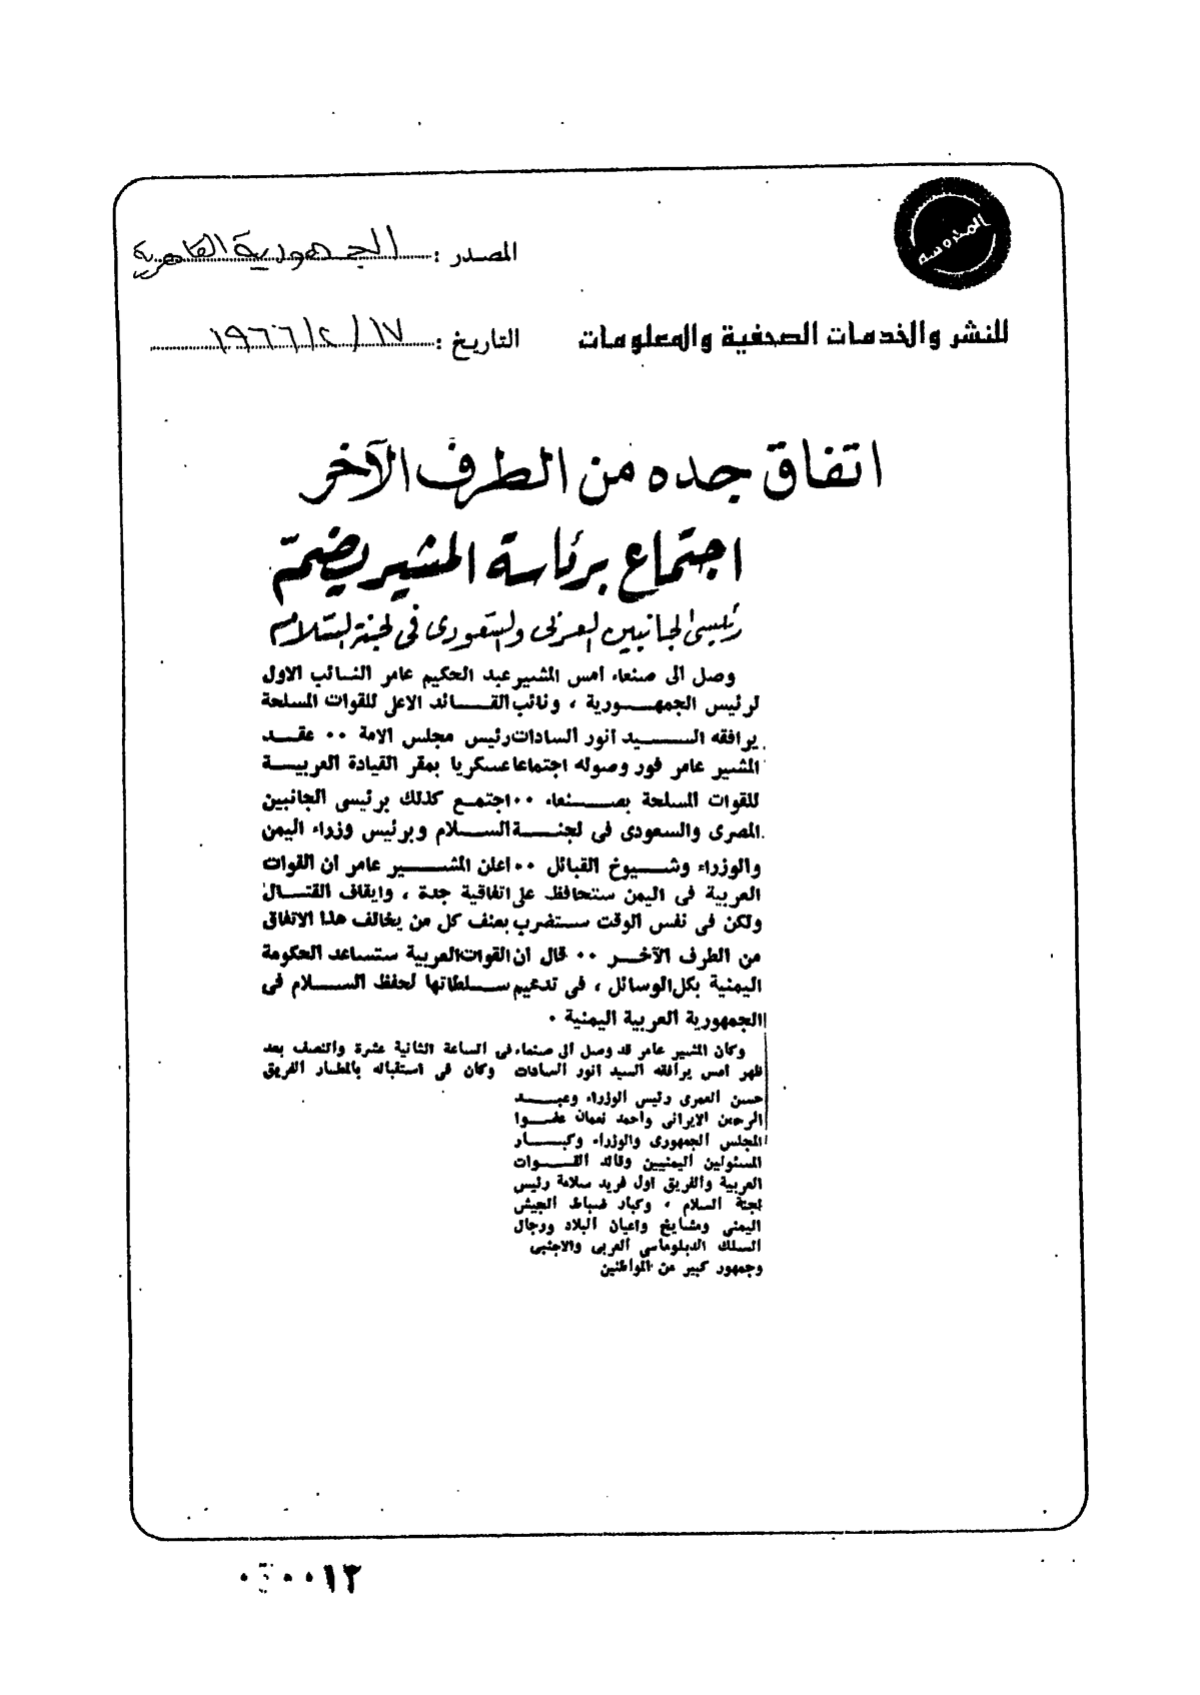 المحروسة
المصدر : الجمهورية القاهرية
للنشر والخدمات الصحفية والمعلومات
التاريخ : ١٧/ ٢/ ١٩٦٦
اتفاق جده من الطرف الآخر
اجتماع برئاسة المشير يضمّ
رئيسى الجانبين العربى والسعودى فى لجنة السلام
وصل الى صنعاء امس المشير عبد الحكيم عامر النائب الاول
لرئيس الجمهورية ، ونائب القائد الاعلى للقوات المسلحة
يرافقه السيد انور السادات رئيس مجلس الامة ٠٠ عقد
المشير عامر فور وصوله اجتماعا عسكريا بمقر القيادة العربية
للقوات المسلحة بصنعاء ٠٠ اجتمع كذلك برئيسى الجانبين
المصرى والسعودى فى لجنة السلام وبرئيس وزراء اليمن
والوزراء وشيوخ القبائل ٠٠ اعلن المشير عامر ان القوات
العربية فى اليمن ستحافظ على اتفاقية جدة ، وايقاف القتال
ولكن فى نفس الوقت ستضرب بعنف كل من يخالف هذا الاتفاق
من الطرف الآخر ٠٠ قال ان القوات العربية ستساعد الحكومة
اليمنية بكل الوسائل ، فى تدعيم سلطاتها لحفظ السلام فى
الجمهورية العربية اليمنية ٠
وكان المشير عامر قد وصل الى صنعاء فى الساعة الثانية عشرة والنصف بعد
ظهر امس يرافقه السيد انور السادات وكان فى استقباله بالمطار الفريق
حسن العمرى رئيس الوزراء وعبد
الرحمن الايرانى واحمد نعمان عضوا
المجلس الجمهورى والوزراء وكبار
المسئولين اليمنيين وقائد القوات
العربية والفريق اول فريد سلامة رئيس
لجنة السلام ، وكبار ضباط الجيش
اليمنى ومشايخ واعيان البلاد ورجال
السلك الدبلوماسى العربى والاجنبى
وجمهور كبير من المواطنين